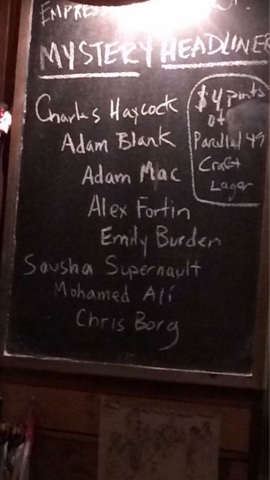 MYSTERY HEADLINER
Charles Haycock
Adam Blank
Adam Mac
Alex Fortin
Emily Burden
Sausha Supernault
Mohamed Ali
Chris Borg
$4 pints
of
Parallel 49
Craft
Lager